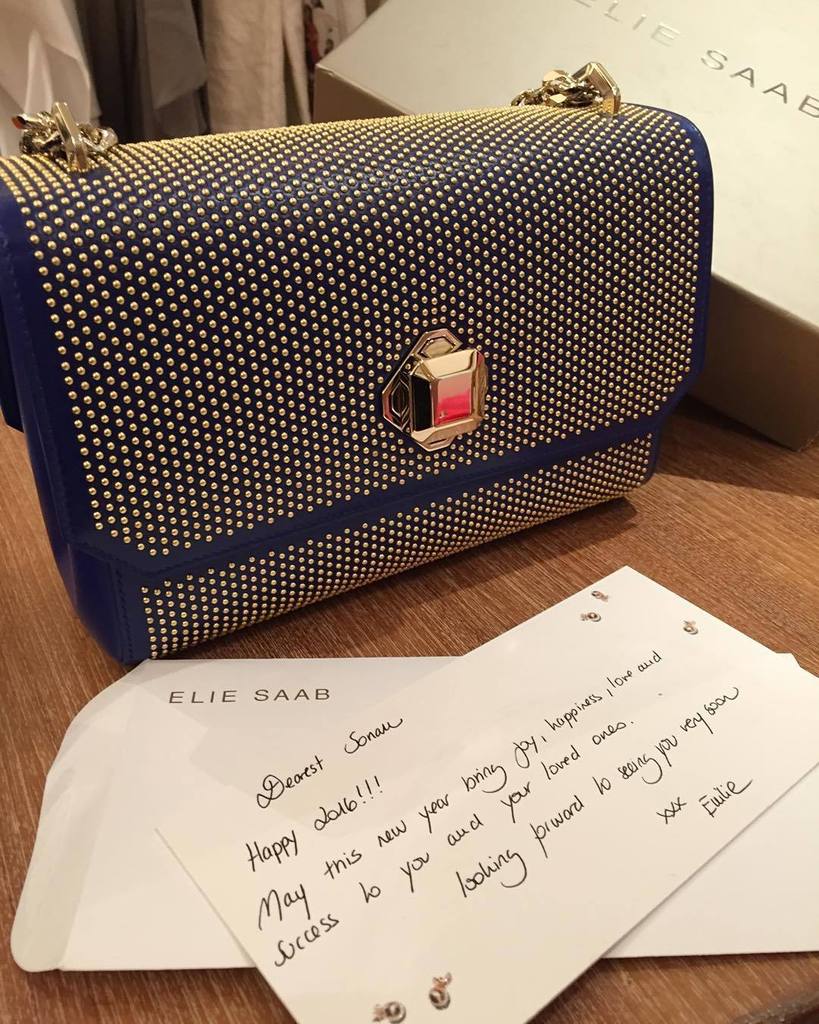 ELIE SAAB
ELIE SAAB
Dearest Sonam
Happy 2016!!!
May this new year bring joy, happiness, love and
success to you and your loved ones.
looking forward to seeing you very soon
xxx Emilie